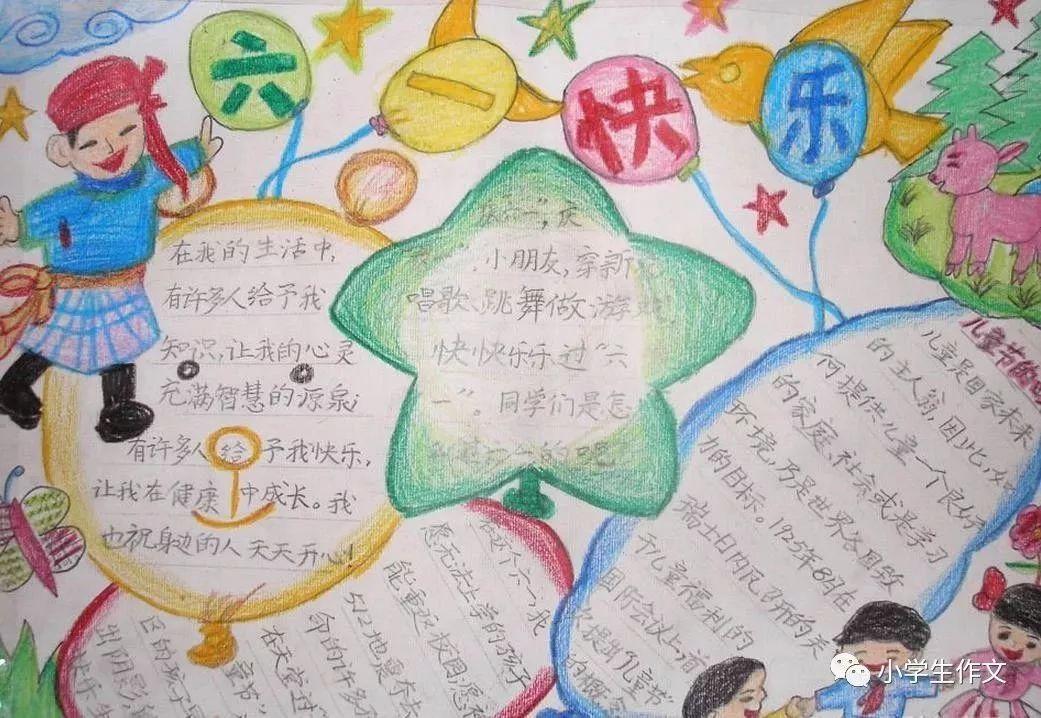 六一快乐
在我的生活中,
有许多人给予我
知识,让我的心灵
充满智慧的源泉;
有许多人给予我快乐,
让我在健康中成长。我
也祝身边的人天天开心!
六一”,庆
”,小朋友,穿新
唱歌、跳舞做游戏,
快快乐乐过“六
一”。同学们是怎
的呢
儿童节的
儿童是国家未来
的主人翁,因此,如
何提供儿童一个良好
的家庭、社会或是学习
环境,乃是世界各国致
力的目标。1925年8月在
瑞士日内瓦召开的关
于儿童福利的
国际会议上,首
次提出“儿童节”
的概念
在这个六一,我
愿无法上学的孩子
能重返校园,愿
512地震夺去
命的许多
在天堂过
小学生作文